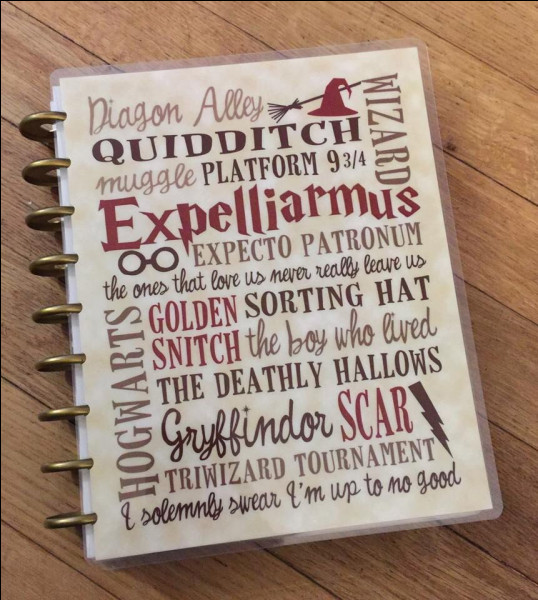 Diagon Alley
WIZARD
QUIDDITCH
muggle PLATFORM 9 3/4
Expelliarmus
EXPECTO PATRONUM
the ones that love us never really leave us
HOGWARTS
GOLDEN SNITCH
SORTING HAT
the boy who lived
THE DEATHLY HALLOWS
Gryffindor SCAR
TRIWIZARD TOURNAMENT
I solemnly swear I'm up to no good